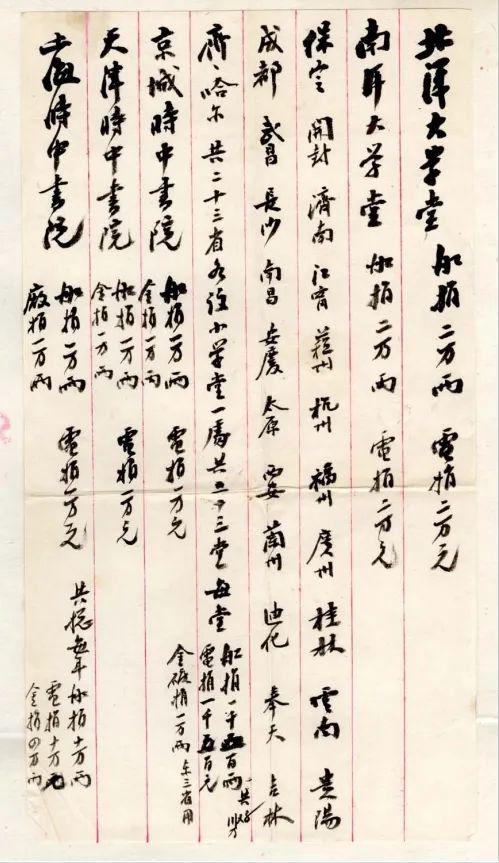 北洋大学堂 船捐二万两 電捐二万元
南洋大学堂 船捐二万两 電捐二万元
保定 開封 濟南 江甯 蘇州 杭州 福州 廣州 桂林 雲南 貴陽
成都 武昌 長沙 南昌 安慶 太原 西安 蘭州 迪化 奉天 吉林
齊々哈尔 共二十三省各設小学堂一處共二十三堂每堂
船捐一千五百两
電捐一千五百元
金砿捐一万两 东三省用
京城時中書院 船捐一万两 電捐一万元
金捐一万两
天津時中書院 船捐一万两 電捐一万元
金捐一万两
上海時中書院 船捐一万两 電捐一万元
廠捐一万两
共捴每年船捐十万两
電捐十万元
金捐四万两